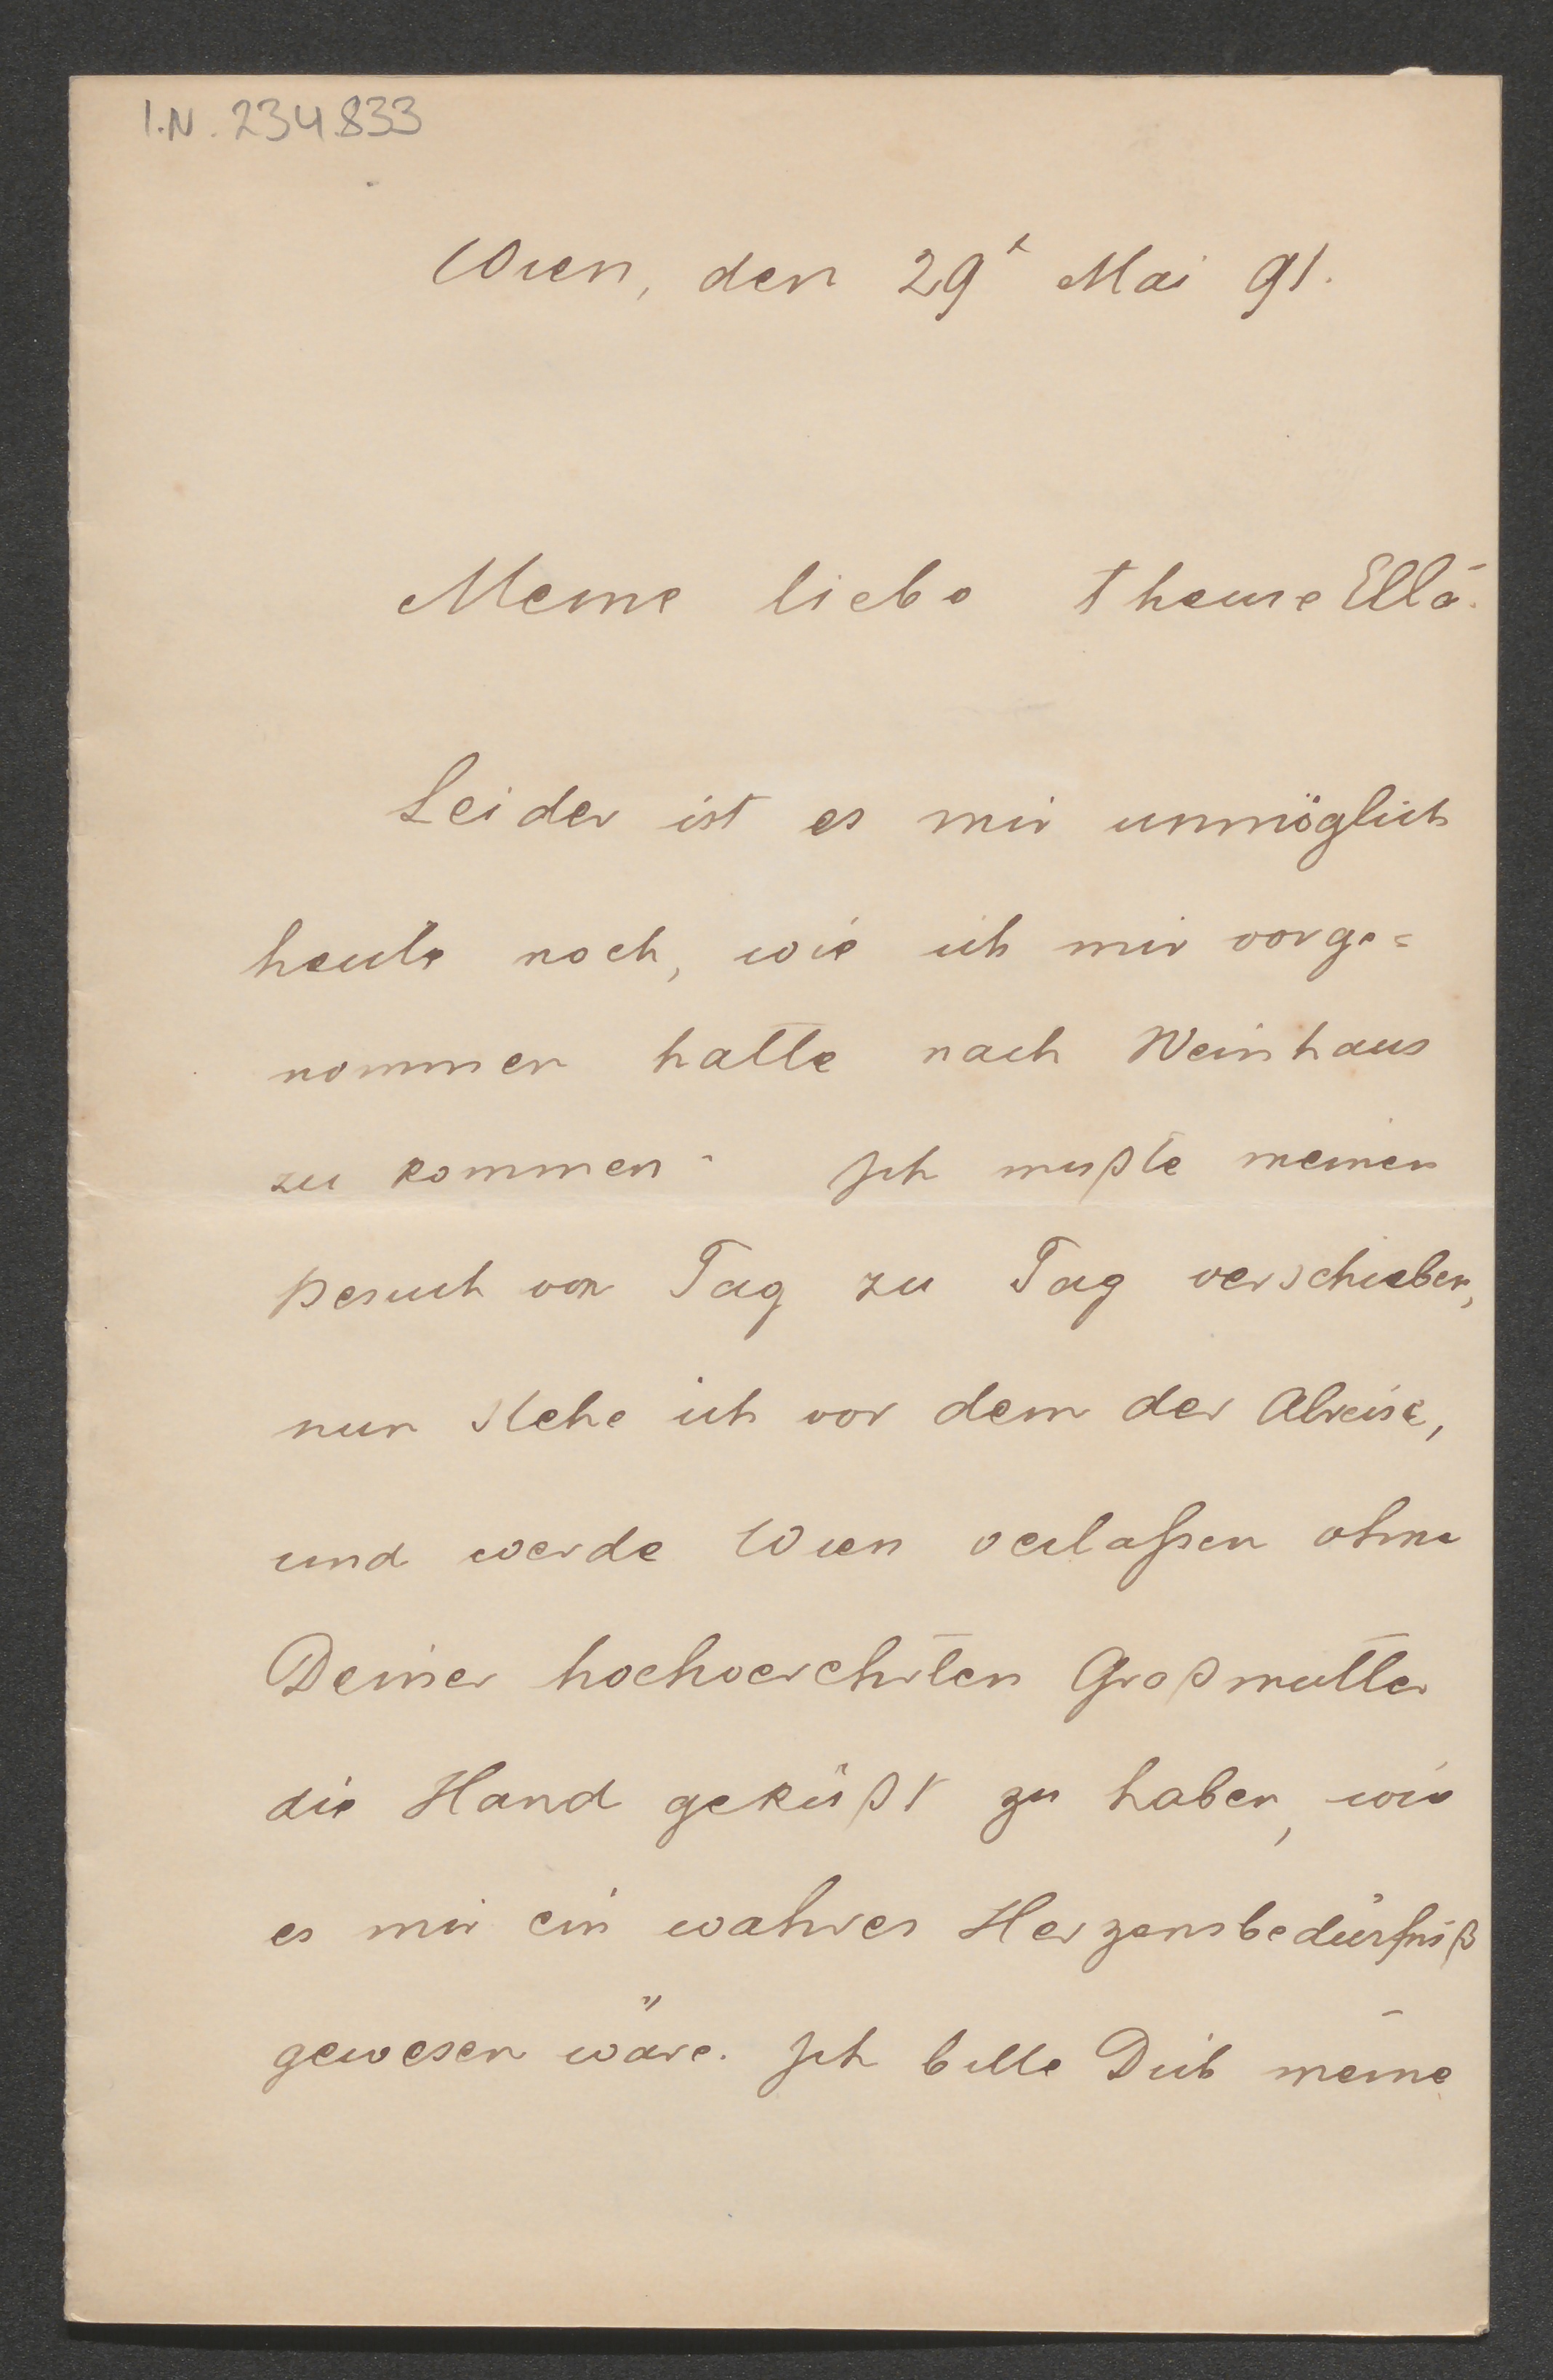 I.N. 234.833
Wien, den 29t Mai 91.
Meine liebe theure Ella.
Leider ist es mir unmöglich
heute noch, wie ich mir vorge=
nommen hatte nach Weinhaus
zu kommen. Ich mußte meinen
Besuch von Tag zu Tag verschieben,
nun stehe ich vor dem der Abreise,
und werde Wien verlaßen ohne
Deiner hochverehrten Großmutter
die Hand geküßt zu haben, wie
es mir ein wahres Herzensbedürfniß
gewesen wäre. Ich bitte Dich meine